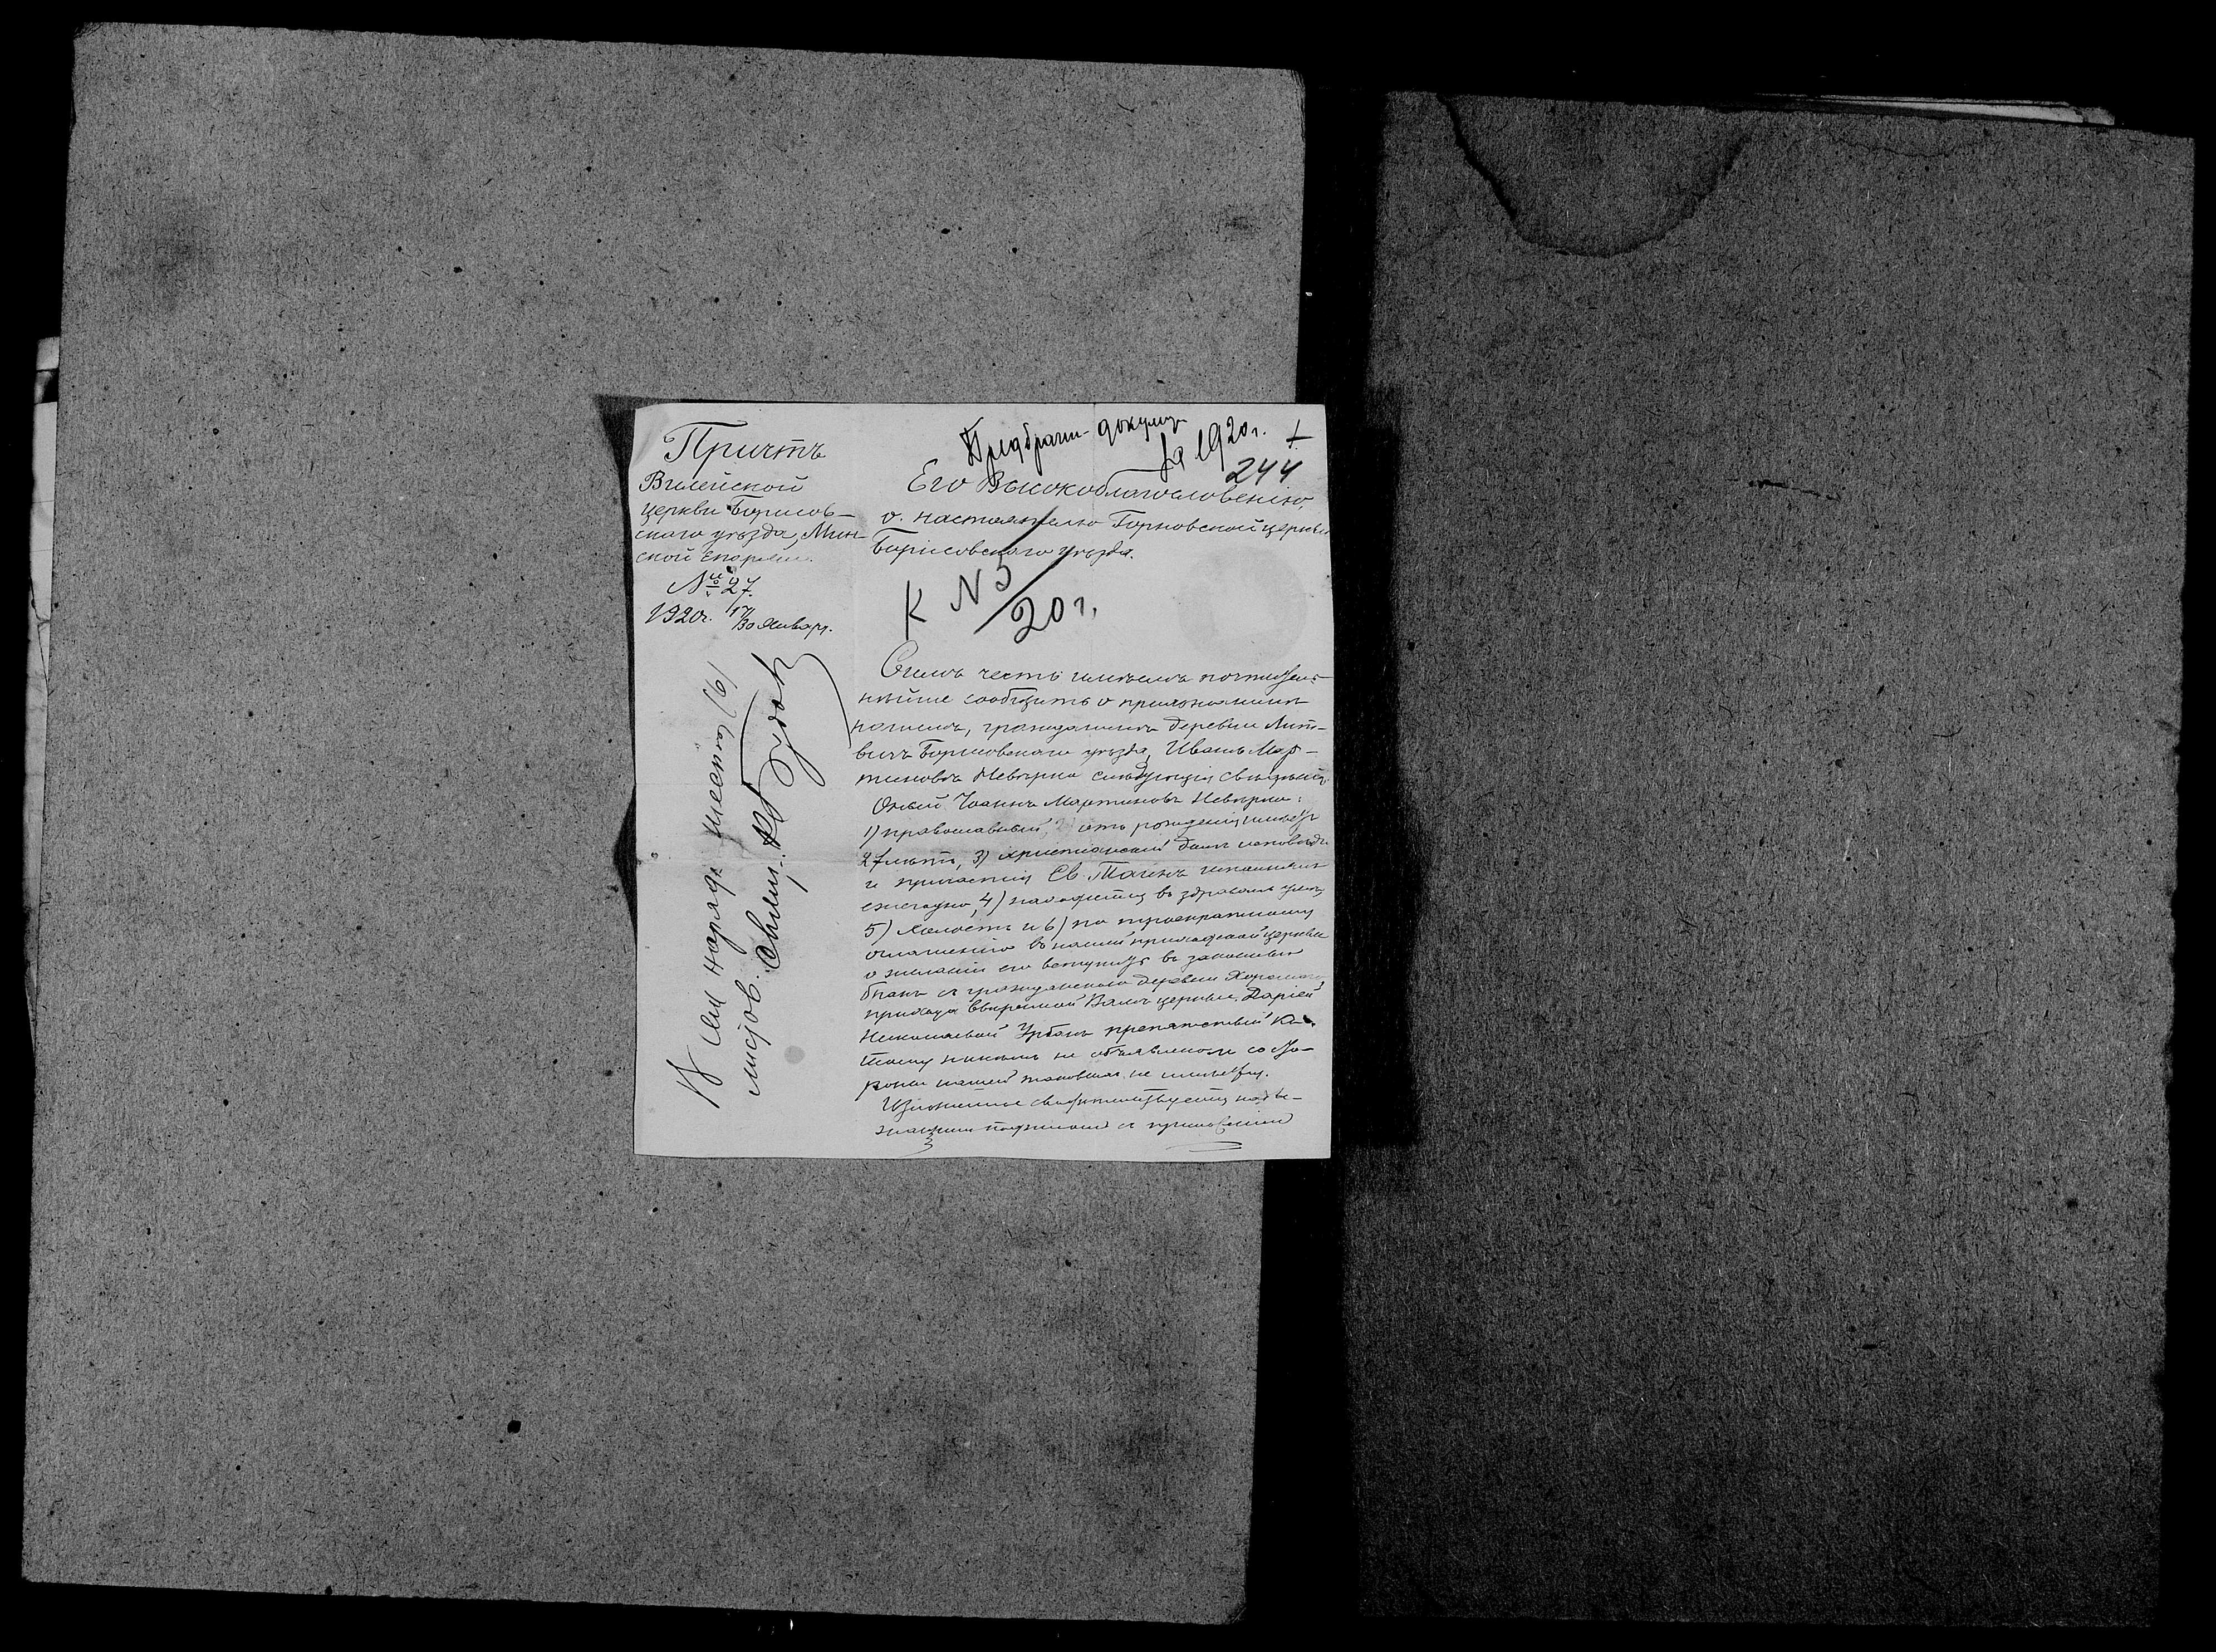 Причтъ
Вилейской
церкви Борисов-
скаго уѣзда, Мин-
ской епархіи.
№ 27.
1920г. 17/30 Января.
Предбрачн. докум.
за 1920 г.
244
Его Высокоблагословенію,
о. настоятелю Горновской церкви
Борисовскаго уѣзда.
К N 5/20 г.
Симъ честь имѣемъ почтитель-
нѣйше сообщить о прихожанинѣ
нашемъ, гражданинѣ деревни Лит-
вичъ Борисовскаго уѣзда, Иванѣ Мар-
тиновѣ Невѣрко слѣдующія свѣдѣнія.
Оный Іоаннъ Мартиновъ Невѣрко:
1) православный, 2) отъ рожденія имѣетъ
27 лѣтъ, 3) христіанскій долгъ исповѣди
и причастія Св. Таинъ исполнялъ
ежегодно, 4) находится въ здравомъ умѣ,
5) холостъ и 6) по троекратному
оглашенію въ нашей приходской церкви
о желаніи его вступить въ законный
бракъ съ гражданкою деревни
прихода ввѣренной Вамъ церкви, Даріей
Николаевой Урбанъ препятствій къ
тому никѣмъ не объявлено и со сто-
роны нашей таковыхъ не имѣется.
Изложенное свидѣтельствуется надле-
жащими подписями съ приложеніем
В сем наряде шесть (6)
листов.